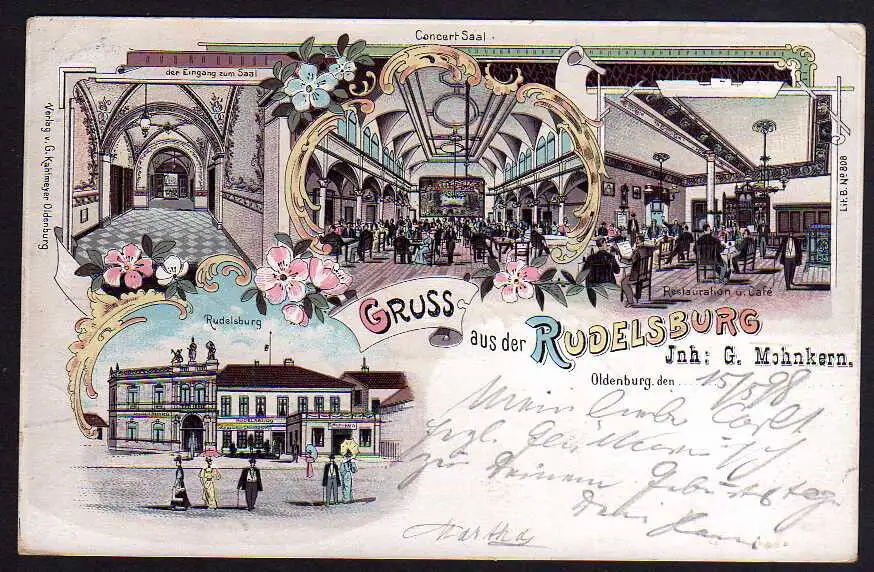 Concert Saal.
der Eingang zum Saal
Verlag v. G. Kahlmeyer Oldenburg
Lit. B. No 808
Restauration u. Café
Rudelsburg
GRUSS
aus der RUDELSBURG
Jnh: G. Mohnkern.
Oldenburg, den 15/5 98
Mein lieber Carl
herzl. Glückwunsch
zu Deinem Geburtstag
Dein
Martha